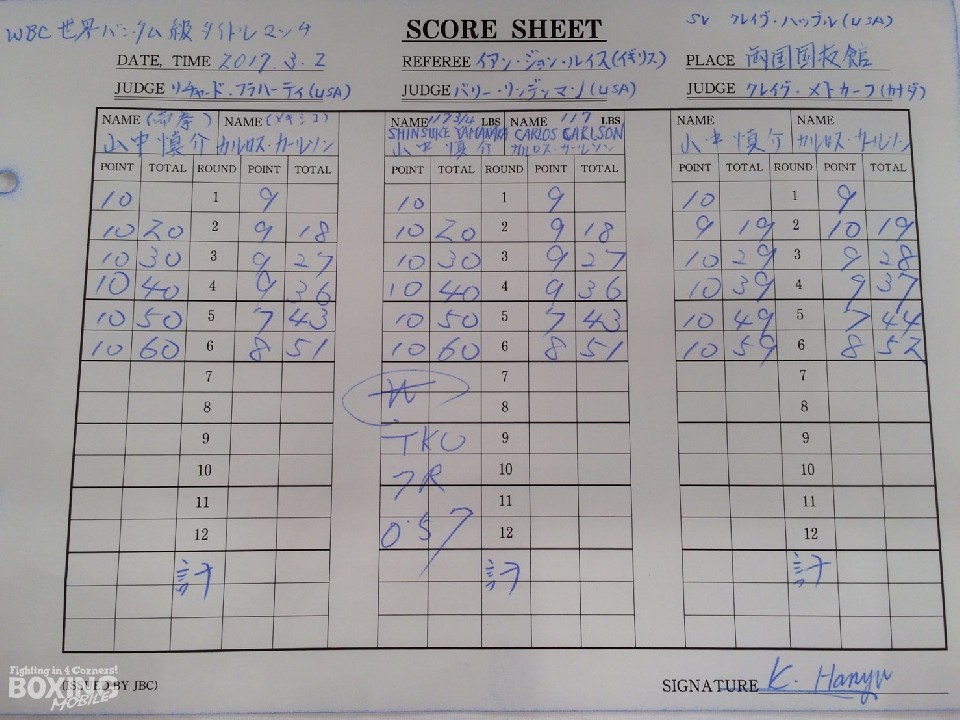 SCORE SHEET
WBC世界バンタム級タイトルマッチ
SV クレイヴ・ハッブル(USA)
DATE, TIME 2017.3.2 REFEREE イアン・ジョン・ルイス(イギリス) PLACE 両国国技館
JUDGE リチャード・フラハーティ(USA) JUDGE バリー・リンデンマン(USA) JUDGE クレイヴ・メトカーフ(カナダ)
NAME (帝拳) NAME (メキシコ) NAME 117 3/4 LBS NAME 117 LBS NAME NAME
SHINSUKE YAMANAKA CARLOS CARLSON
山中慎介 カルロス・カールソン 山中慎介 カルロス・カールソン 山中慎介 カルロス・カールソン
POINT TOTAL ROUND POINT TOTAL POINT TOTAL ROUND POINT TOTAL POINT TOTAL ROUND POINT TOTAL
10 1 9 10 1 9 10 1 9
10 20 2 9 18 10 20 2 9 18 9 19 2 10 19
10 30 3 9 27 10 30 3 9 27 10 29 3 9 28
10 40 4 9 36 10 40 4 9 36 10 39 4 9 37
10 50 5 7 43 10 50 5 7 43 10 49 5 7 44
10 60 6 8 51 10 60 6 8 51 10 59 6 8 52
7 7 7
8 W 8 8
9 TKO 9 9
10 7R 10 10
11 11 11
12 0'57 12 12
計 計 計
(ISSUED BY JBC) SIGNATURE K. Hanyu
Fighting in 4 Corners!
BOXING
MOBILE